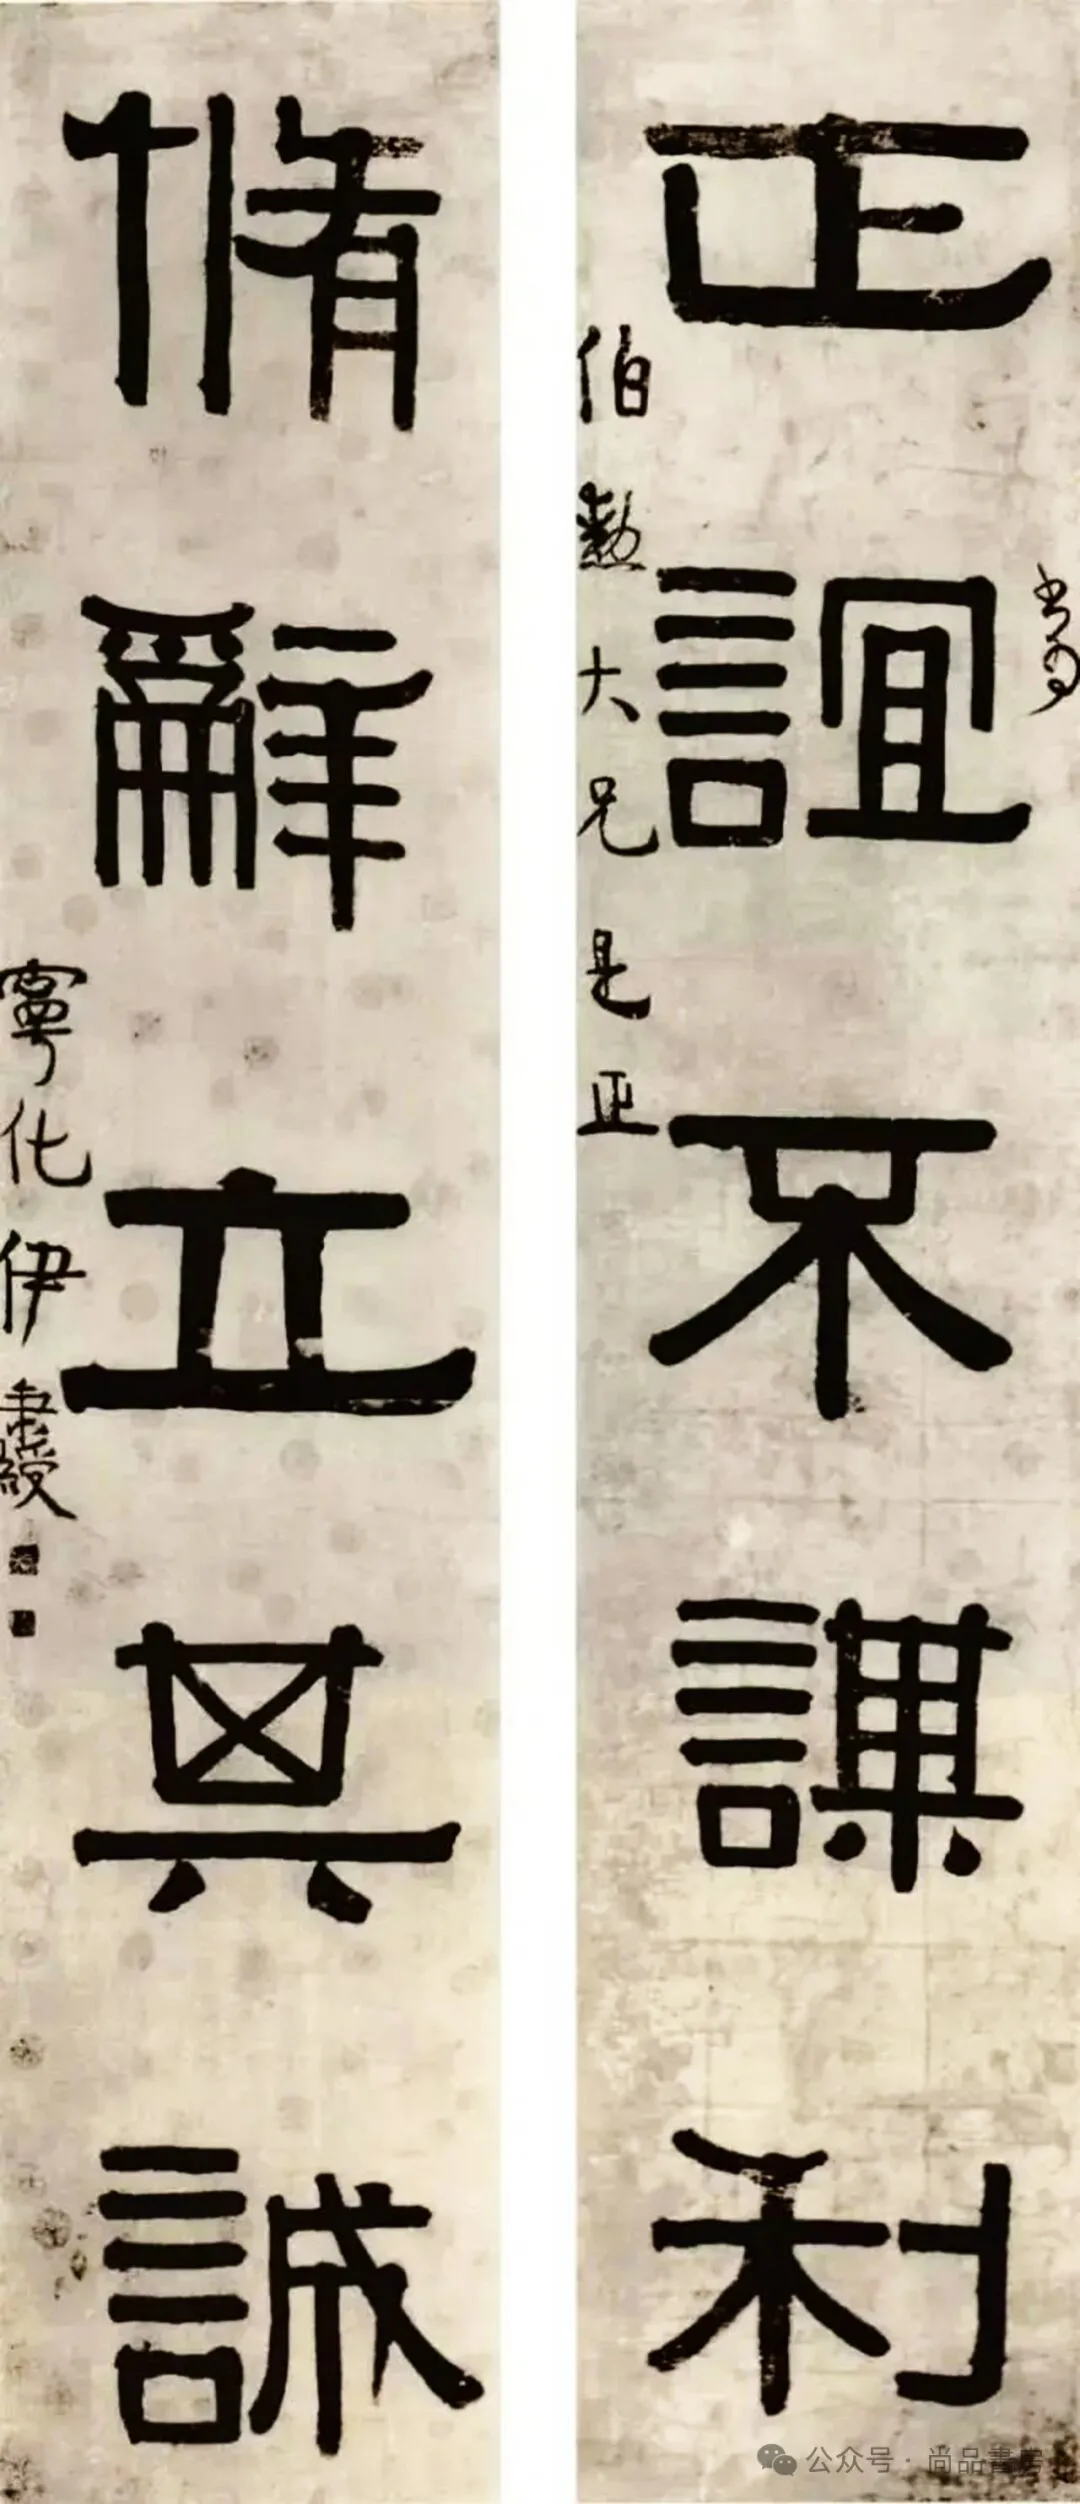 正誼不謀利
書為
伯勲大兄是正
脩辭立其誠
寧化伊秉綬
公众号·尚品書房